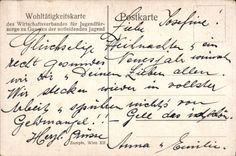 Wohltätigkeitskarte
des Wirtschaftsverbandes für Jugendfür-
sorge zu Gunsten der notleidenden Jugend
Postkarte
Liebe Josefine!
Glückselige Weihnachten u ein
recht gesundes Neues Jahr wünscht
wir Dir u Deinen Lieben allen.
Wir stecken wieder in vollster
Arbeit u spüren nichts von
Geldmangel!!! Gelt das ist
Herzl. Grüsse
Anna u Emilie
Zacupte, Wien XII